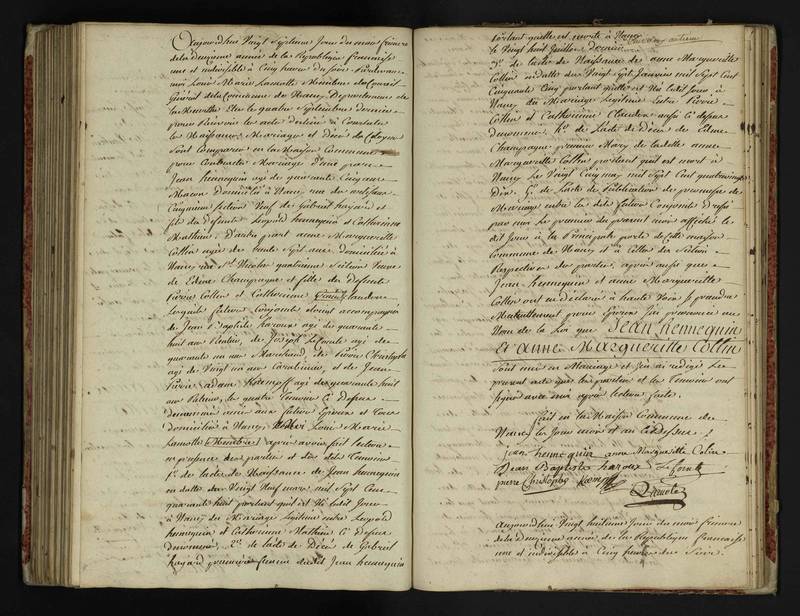 Aujourdhui Vingt Septieme Jour du mois frimaire
de la deuxieme année de la Republique francaise
une et indivisible à Cinq heures du Soir Pardevant
moi Louis Marie Lamolle Membre du Conseil
Général de la Commune de Nancy Departement de
la Meurthe Elu le quatre Septembre dernier
pour Recevoir les actes destinés à Constater
les Naissances, Mariages et Décès des Citoyens
Sont Comparus en la Maison Commune
pour Contracter Mariage d'une part
Jean hennequin agé de quarante Cinq ans
Macon Domicilié à Nancy rue
Cinquieme Section Veuf de Gabriel hayard et
fils des défunts Leopold hennequin et Catherinne
Mathieu, D'autre part anne Margueritte
Collin agée de trente Sept ans domiciliée à
Nancy rue St. Nicolas quatrieme Section Veuve
de Edme Champagne et fille des défunts
Pierre Collin et Catherinne Claudon
Lesquels futurs Conjoints étoient accompagnés
de Jean Baptiste haroux agé de quarante
huit ans, de Joseph Lecomte agé de
quarante un ans Marchand, de Pierre Christophe
agé de Vingt un ans Carabinier, et de Jean
Pierre adam Kaempff agé de quarante huit
ans, les quatre temoins Ci dessus
denommés amis aux futurs Epoux et tous
domiciliés à Nancy, Louis Marie
Lamolle Membre après avoir fait lecture
en presence des parties et des dits temoins
1°. de lacte de Naissance de Jean hennequin
en datte du Vingt Neuf mars mil Sept Cent
quarante huit portant quil est Né ledit Jour
à Nancy du Mariage Légitime entre Leopold
hennequin et Catherinne Mathieu Ci dessus
denommés, 2°. de lacte de Décès de Gabriel
hayard premiere femme dudit Jean hennequin
portant quelle est morte à Nancy
le Vingt huit Juillet dernier
3°. de lacte de Naissance de anne Margueritte
Collin en datte du Vingt Sept Janvier mil Sept Cent
Cinquante Cinq portant quelle est Né ledit Jour à
Nancy du Mariage Légitime Entre Pierre
Collin et Catherinne Claudon aussi Ci dessus
denommés, 4°. de Lacte de Décès de Edme
Champagne premier Mary de ladotte anne
Marguerite Collin portant quil est mort à
Nancy Le Vingt Cinq may mil Sept Cent quatrevingt
Dix. 5°. de Lacte de Publication de promesse de
Mariage entre les dits futurs Conjoints Dressé
par moi Le premier du present mois affiché le
dit Jour à la Principale porte de cette maison
Commune de Nancy et à Celles des Sections
Respectives des parties, après aussi que
Jean hennequin et anne Marguerite
Collin ont eu déclaré à haute Voix Se prendre
Mutuellement pour Epoux J'ai prononcé au
Nom de la Loi que Jean hennequin
Et anne Marguerite Collin
Sont unis en Mariage et J'ai redigé Le
present acte que les parties et les temoins ont
Signé avec moi après lecture faite.
fait en la Maison Commune de
Nancy les Jour mois et an Ci dessus
jean hennequin anne Marguerite Colin
Jean Baptiste haroux Le Comte
pierre Christophe Kaempff
Lamolle
Aujourdhui Vingt huitieme Jour du mois frimaire
de la deuxieme année de la Republique francaise
une et indivisible à Cinq heures du Soir,